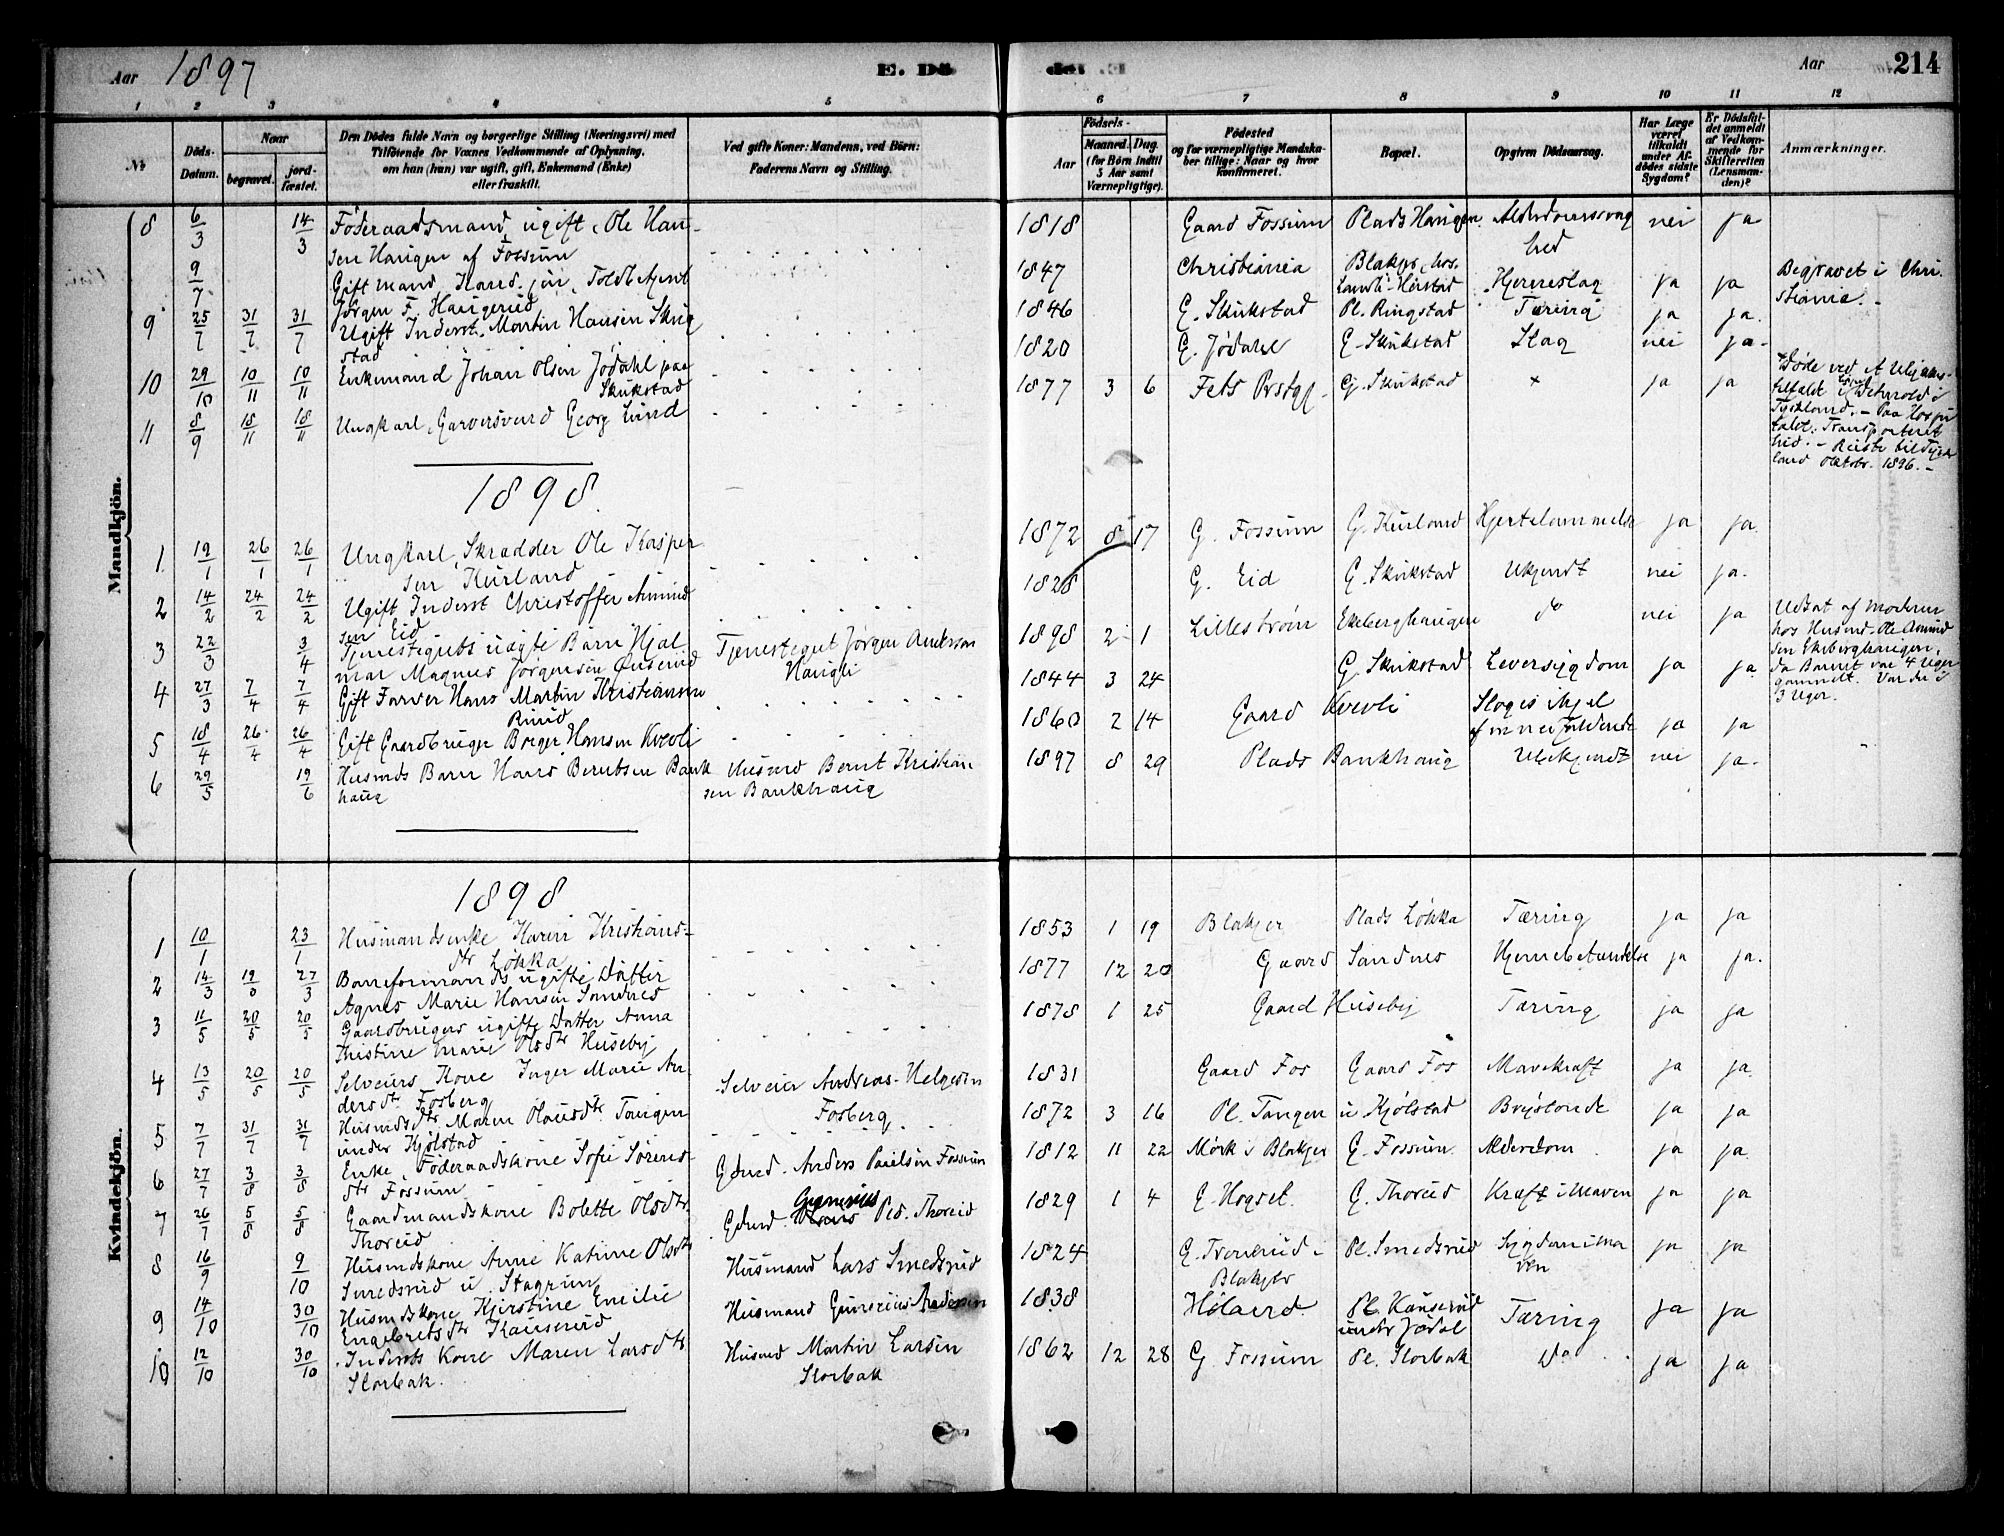 Aar 1897
E. Dö
E. Dö
Aar
214
1 2 3 4 5
6 7 8 9 10 11 12
No
Döds-Datum.
Naar
begravet.
jord-fæstet.
Den Dödes fulde Navn og borgerlige Stilling (Næringsvei) med
Tilföiende for Voxnes Vedkommende af Oplysning,
om han (hun) var ugift, gift, Enkemand (Enke)
eller fraskilt.
Ved gifte Koner: Mandens, ved Börn:
Faderens Navn og Stilling.
Födsels-
Aar
Maaned. Dag.
(for Börn indtil
5 Aar samt
Værnepligtige).
Födested
og for værnepligtige Mandska-
ber tillige: Naar og hvor
konfirmeret.
Bopæl.
Opgiven Dödsaarsag.
Har Læge
været
tilkaldt
under Af-
dödes sidste
Sygdom?
Er Dödsfal-
det anmeldt
af Vedkom-
mende for
Skifteretten
(Lensman-
den)?
Anmærkninger.
Mandkjön.
8 6/3 14/3 Föderaadsmand, ugift, Ole Han-
sen Haugen af Fossum
1818 Gaard Fossum Plads Haugen Alderdomssvag
hed nei ja
9/7 Gift mand, Kand. jur, Toldt
Jörgen F. Haugerud
1847 Christiania Blakjer, hos
Hjerneslag ja ja Begravet i Chri-
stiania. -
9 25/7 31/7 31/7 Ugift Inderst. Martin Hansen Skug
stad
1846 G. Skukstad Pl. Ringstad Tæring ja ja.
10 29/10 10/11 10/11 Enkemand Johan Olsen Jödahl paa
Skukstad
1820 G. Jödahl G. Skukstad Slag nei ja-
11 8/9 18/11 18/11 Ungkarl, Garversvend Georg Lund
1877 3 6 Fets Prstgj. G. Skukstad + ja ja
+ Döde ved et Ulykkes-
tilfælde i Detmold i
Tyskland. - Paa Hospi
talet. Transporteret
hid. - Reiste til Tysk
land Oktobr. 1896. -
1898.
1 19/1 26/1 26/1 Ungkarl, Skrædder Ole Kasper
sen Kurland
1872 8 17 G. Fossum G. Kurland Hjertelammelse ja ja.
2 14/2 24/2 24/2 Ugift Inderst Christoffer Amund
sen Eid
1828 G. Eid G. Skukstad Ukjendt nei ja.
3 22/3 3/4 Tjenesteguts uægte Barn Hjal
mar Magnus Jörgensen
Tjenestegut Jörgen Anderson
Haugli
1898 2 1 Lilleström Ekeberghaugen do nei ja
Udsat af Moderen
hos Husmd. Ole Amund
sen Ekeberghaugen,
da Barnet var 4 Uger
gammelt. Var der i
3 Uger.
4 27/3 7/4 7/4 Gift Farver Hans Martin Kristiansen
Rud
1844 3 24 G. Skukstad Leversygdom ja ja.
5 18/4 26/4 26/4 Gift Gaardbruger Borger Hansen Kvevli
1860 2 14 Gaard Kvevli Sloges ihjel
af en nedfaldende ja ja
6 29/5 19/6 Husmds Barn Hans Berntsen Bank
haug
Husmd Bernt Kristian
sen Bankhaug
1897 8 29 Plads Bankhaug Ubekjendt nei ja.
Kvindekjön.
1898
1 10/1 23/1 Husmandsenke Karen Kristians-
dtr Lökka
1853 1 19 Blakjer Plads Lökka Tæring ja ja
2 14/3 19/3 27/3 Baneformands ugifte Datter
Agnes Marie Hansen Sandnes
1877 12 20 Gaard Sandnes Hjernebetændelse ja ja.
3 11/5 20/5 20/5 Gaardbrugers ugifte Datter Anna
Kristine Marie Olsdtr Huseby
1878 1 25 Gaard Huseby Tæring ja ja
4 13/5 20/5 20/5 Selveiers Kone Inger Marie An
dersdtr. Fosberg
Selveier Andreas Helgesen
Fosberg
1831 Gaard Fos Gaard Fos Mavekræft ja ja.
5 7/7 31/7 31/7 Husmdsdtr Maren Olausdtr Tangen
under Kjölstad
1872 3 16 Pl. Tangen u Kjölstad Brystonde ja ja
6 27/7 3/8 3/8 Enke, Föderaadskone Sofie Sörens-
dtr Fossum
Gdmd. Anders Paulsen Fossum
1812 11 22 Mörk i Blakjer G. Fossum. Alderdom ja ja.
7 26/7 5/8 5/8 Gaardmandskone Bolette Olsdtr.
Thorud
Gdmd. Gunerius Ped. Thorud
1829 1 4 G. Hogset. G. Thorud Kræft i Maven ja ja
8 16/9 9/10 Husmdskone Anne Katrine Olsdtr
Smedsrud u. Stagrum
Husmand Lars Smedsrud
1824 G. Tronrud i
Blakjer Pl. Smedsrud Sygdom i Ma
ven ja ja
9 14/10 30/10 Husmdskone Kjerstine Emilie
Engebretsdtr Kauserud
Husmand Gunerius Andersen
1838 Höland Pl. Kauserud
under Jödal Tæring ja ja
10 12/10 30/10 Indersts Kone Maren Larsdtr
Storbak.
Husmd Martin Larsen
Storbak
1862 12 28 G. Fossum Pl. Storbak Do ja ja